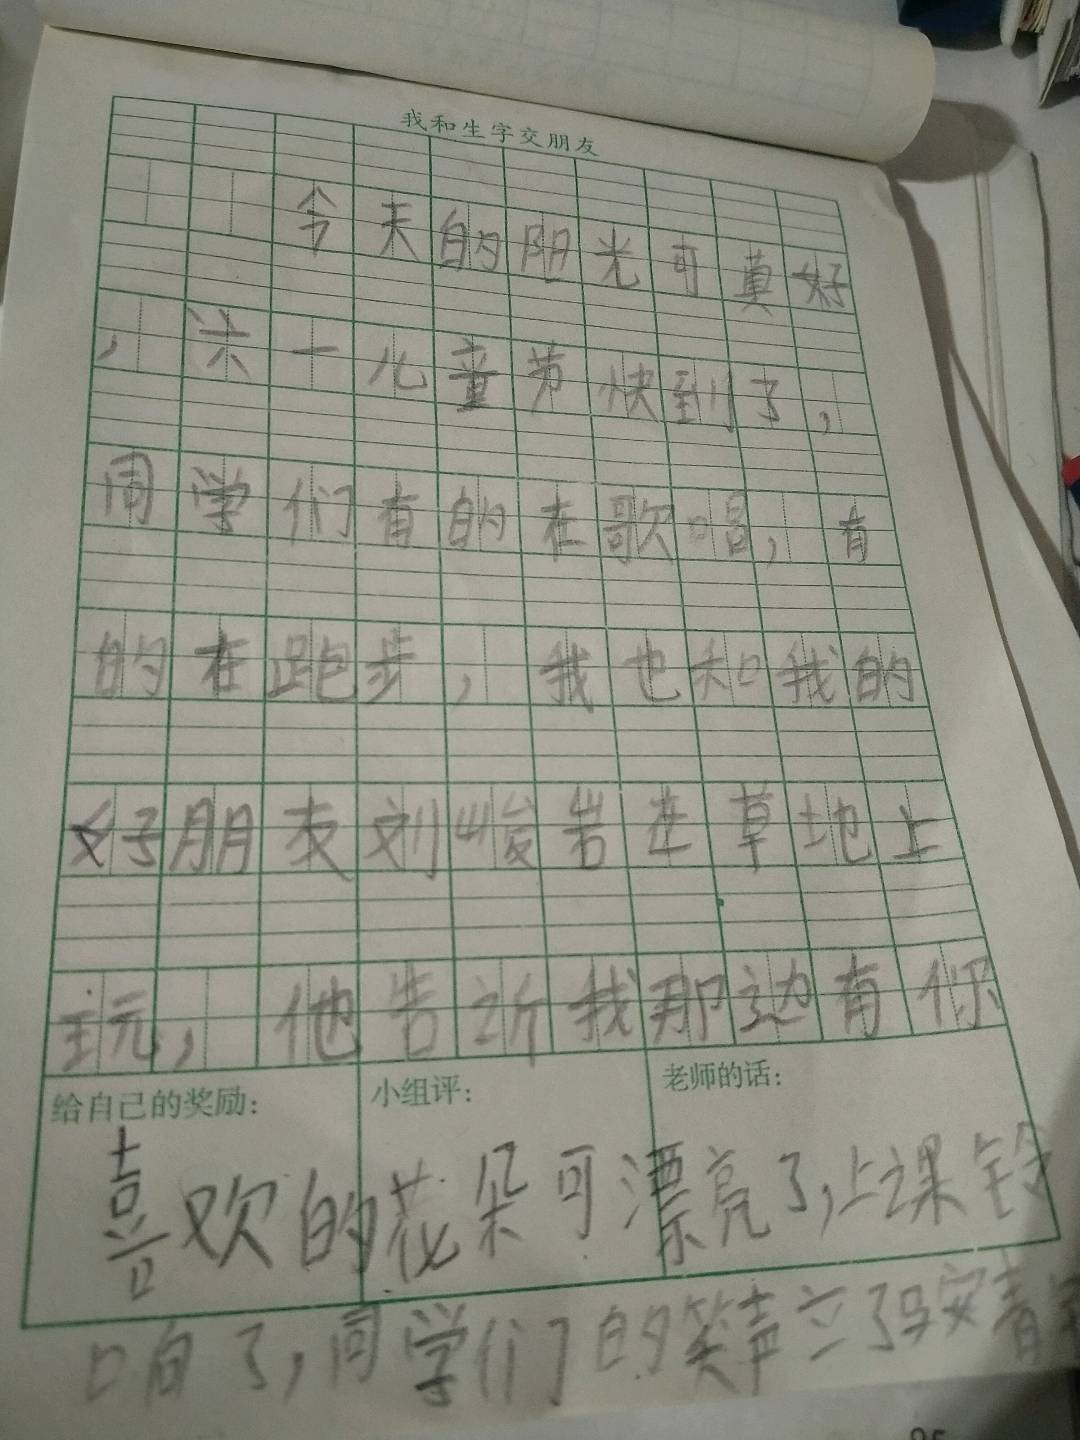 我和生字交朋友
今天的阳光可真好
，六一儿童节快到了，
同学们有的在歌唱，有
的在跑步，我也和我的
好朋友刘峻岩在草地上
玩，他告诉我那边有你
给自己的奖励：
小组评：
老师的话：
喜欢的花朵可漂亮了，上课铃
响了，同学们的笑声立了